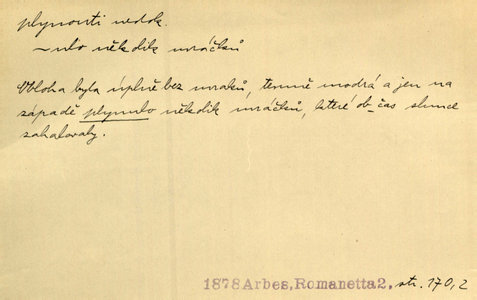 plynouti nedok.
~ulo několik mráčků
Obloha byla úplně bez mraků, temně modrá a jen na
západě plynulo několik mráčků, které ob_čas slunce
zahalovaly.
1878 Arbes, Romanetta 2, str. 170,2